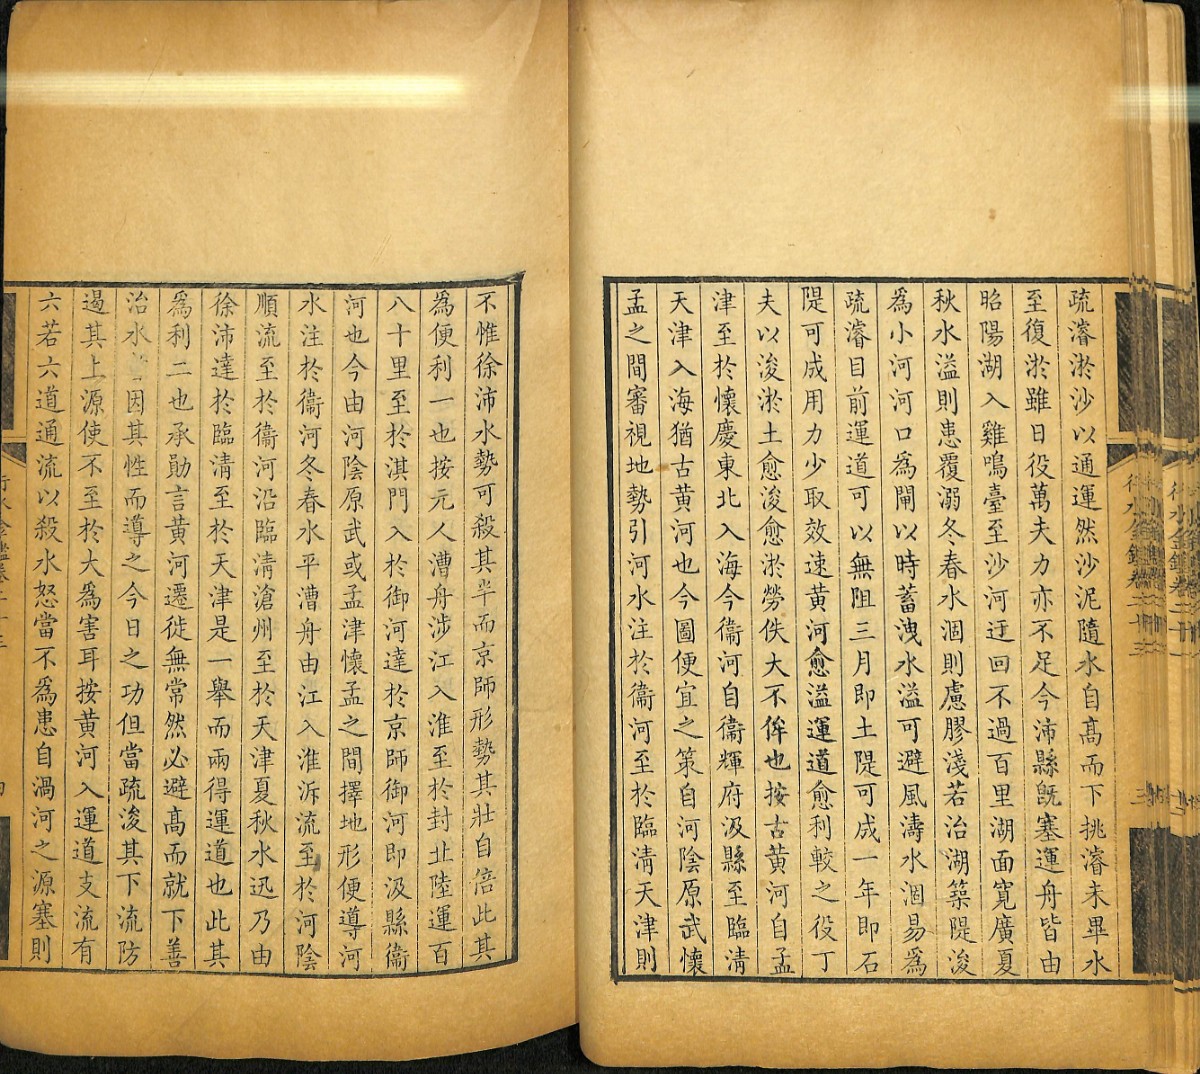 疏濬淤沙以通運然沙泥隨水自高而下挑濬未畢水
至復淤雖日役萬夫力亦不足今沛縣旣塞運舟皆由
昭陽湖入雞鳴臺至沙河迂回不過百里湖面寬廣夏
秋水溢則患覆溺冬春水涸則慮膠淺若治湖築隄浚
爲小河河口爲閘以時蓄洩水溢可避風濤水涸易爲
疏濬目前運道可以無阻三月即土隄可成一年即石
隄可成用力少取效速黃河愈溢運道愈利較之役丁
夫以浚淤土愈浚愈淤勞佚大不侔也按古黃河自孟
津至於懷慶東北入海今衞河自衞輝府汲縣至臨清
天津入海猶古黃河也今圖便宜之策自河陰原武懷
孟之間審視地勢引河水注於衞河至於臨清天津則
不惟徐沛水勢可殺其半而京師形勢其壯自倍此其
爲便利一也按元人漕舟涉江入淮至於封北陸運百
八十里至於淇門入於御河達於京師御河即汲縣衞
河也今由河陰原武或孟津懷孟之間擇地形便導河
水注於衞河冬春水平漕舟由江入淮泝流至於河陰
順流至於衞河沿臨清滄州至於天津夏秋水迅乃由
徐沛達於臨清至於天津是一舉而兩得運道也此其
爲利二也承勛言黃河遷徙無常然必避高而就下善
治水因其性而導之今日之功但當疏浚其下流防
遏其上源使不至於大爲害耳按黃河入運道支流有
六若六道通流以殺水怒當不爲患自渦河之源塞則